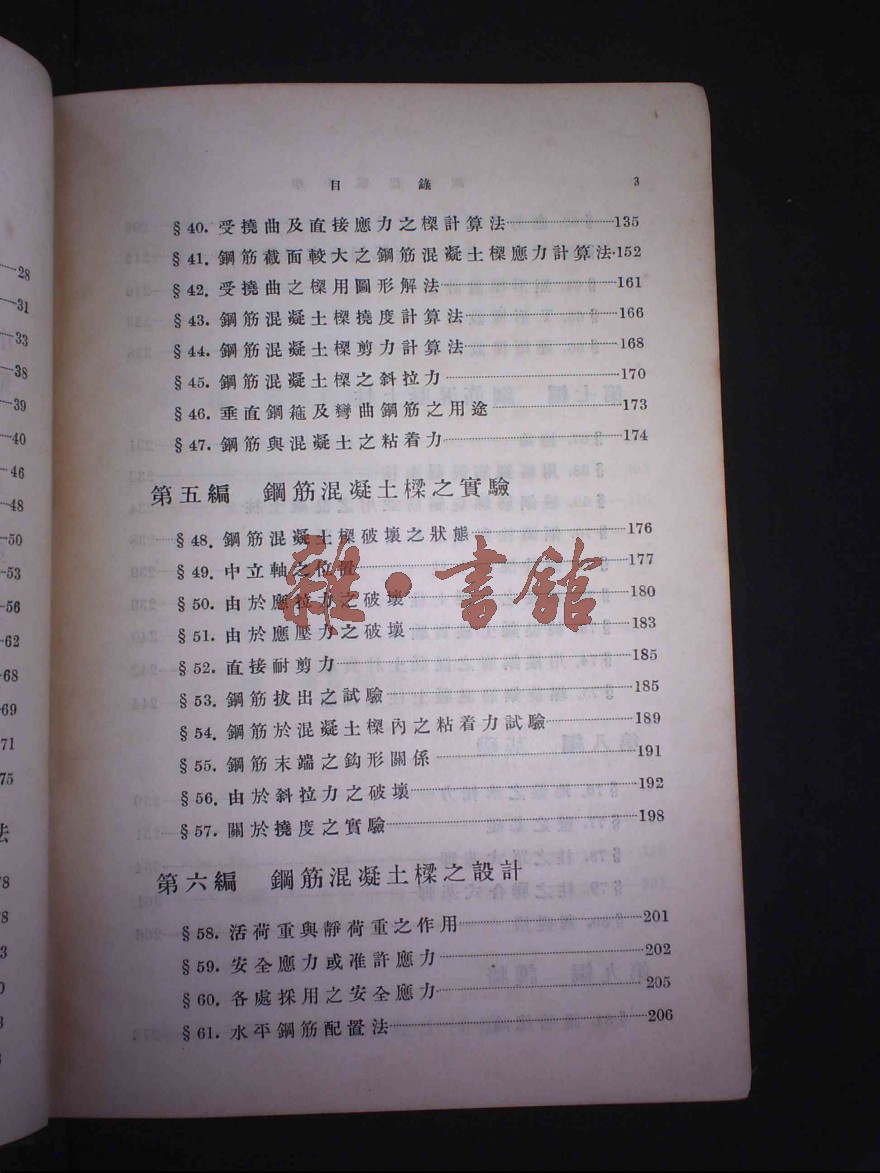 28
31
33
38
39
40
46
48
50
53
56
62
68
69
71
75
法
78
78
目錄 3
§40. 受撓曲及直接應力之樑計算法 135
§41. 鋼筋截面較大之鋼筋混凝土樑應力計算法 152
§42. 受撓曲之樑用圖形解法 161
§43. 鋼筋混凝土樑撓度計算法 166
§44. 鋼筋混凝土樑剪力計算法 168
§45. 鋼筋混凝土樑之斜拉力 170
§46. 垂直鋼箍及彎曲鋼筋之用途 173
§47. 鋼筋與混凝土之粘着力 174
第五編 鋼筋混凝土樑之實驗
§48. 鋼筋混凝土樑破壞之狀態 176
§49. 中立軸之位置 177
§50. 由於應拉力之破壞 180
§51. 由於應壓力之破壞 183
§52. 直接耐剪力 185
§53. 鋼筋拔出之試驗 185
§54. 鋼筋於混凝土樑內之粘着力試驗 189
§55. 鋼筋末端之鈎形關係 191
§56. 由於斜拉力之破壞 192
§57. 關於撓度之實驗 198
第六編 鋼筋混凝土樑之設計
§58. 活荷重與靜荷重之作用 201
§59. 安全應力或准許應力 202
§60. 各處採用之安全應力 205
§61. 水平鋼筋配置法 206
雜·書舘